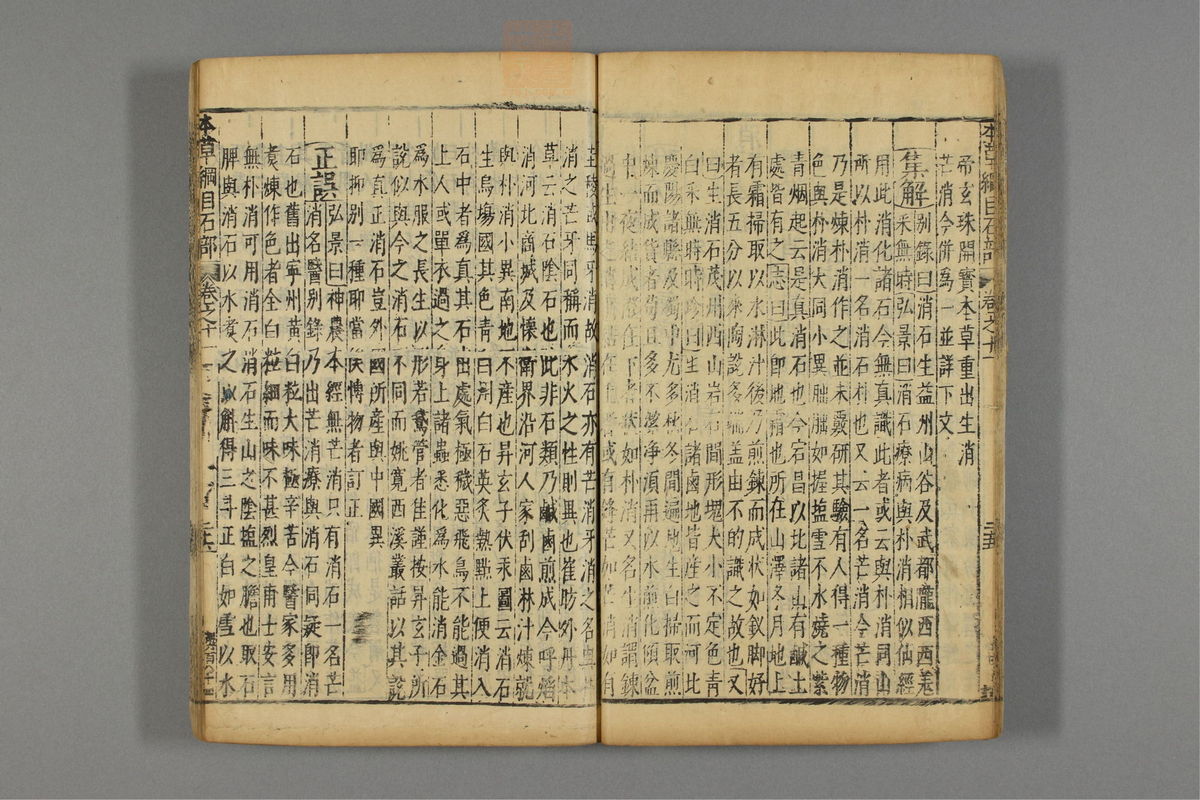 本草綱目石部 卷之十一
帝玄珠開寶本草重出生消
芒消今併爲一並詳下文
集解別錄曰消石生益州山谷及武都隴西西羗
采無時弘景曰消石療病與朴消相似仙經
用此消化諸石今無真識此者或云與朴消同山
所以朴消一名消石朴也又云一名芒消今芒消
乃是煉朴消作之並未覈研其驗有人得一種物
色與朴消大同小異朏朏如握鹽雪不水燒之紫
青烟起云是真消石也今宕昌以北諸山有鹹土
處皆有之志曰此卽地霜也所在山澤冬月地上
有霜掃取以水淋汁後乃煎鍊而成狀如釵脚好
者長五分以來陶說多端盖由不的識之故也又
曰生消石茂州西山岩石間形塊大小不定色青
白采無時時珍曰生消石諸鹵地皆産之而河北
慶陽諸縣及蜀中尤多秋冬間遍地生白掃取煎
煉而成貨者苟且多不潔淨湏再以水煎化傾盆
中一夜結成澄在下者狀如朴消又名生消謂鍊
過生出之消也結在上者或有鋒芒如
消之芒牙同稱而水火之性則異也崔昉外丹本
草云消石陰石也此非石類乃鹹鹵煎成今呼焰
消河北商城及懷衛界沿河人家刮鹵淋汁煉就
與朴消小異南地不産也昇玄子伏汞圖云消石
生烏塲國其色青白用白石英炙熱點上便消入
石中者爲真其石出處氣極穢惡飛鳥不能過其
上人或單衣過之身上諸蟲悉化爲水能消金石
爲水服之長生以形若鵞管者佳謹按昇玄子所
說似與今之消石不同而姚寬西溪叢話以其說
爲真正消石豈外國所産與中國異
卽抑別一種耶當俟博物者訂正
正誤弘景曰神農本經無芒消只有消石一名芒
消名醫別錄乃出芒消療與消石同疑卽消
石也舊出寧州黃白粒大味極辛苦今醫家多用
煑煉作色者全白粒細而味不甚烈皇甫士安言
無朴消可用消石消石生山之陰鹽之膽也取石
脾與消石以水煑之以觧得三斗正白如雪以水
本草綱目石部 卷之十一